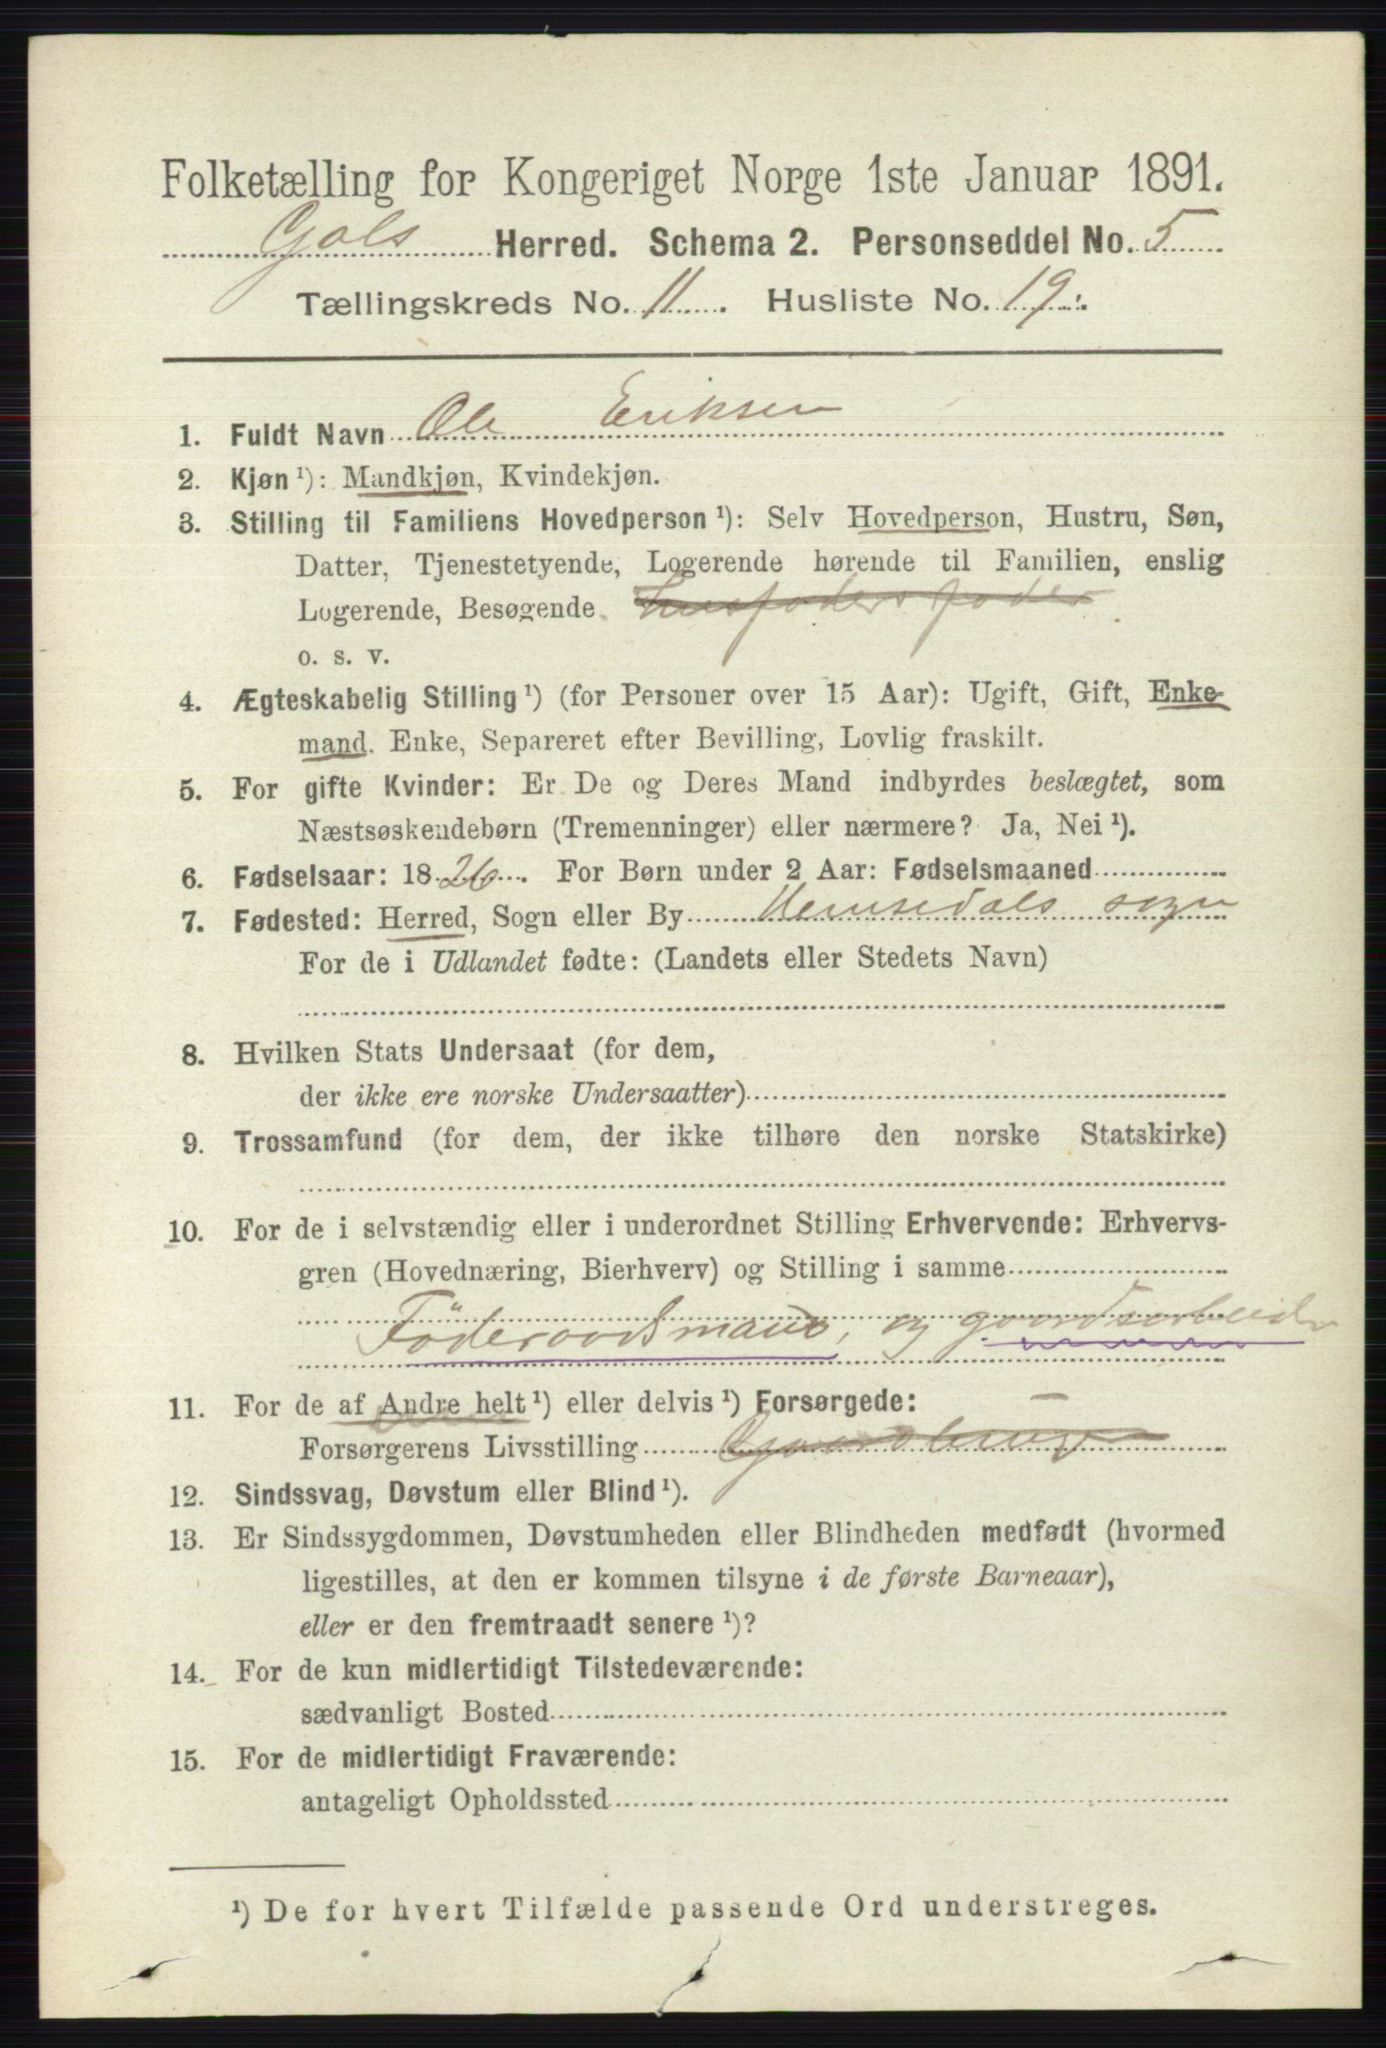 Folketælling for Kongeriget Norge 1ste Januar 1891.
Gols Herred. Schema 2. Personseddel No. 5
Tællingskreds No. 11. Husliste No. 19.
1. Fuldt Navn Ole Eriksen
2. Kjøn ¹): Mandkjøn, Kvindekjøn.
3. Stilling til Familiens Hovedperson ¹): Selv Hovedperson, Hustru, Søn,
Datter, Tjenestetyende, Logerende hørende til Familien, enslig
Logerende, Besøgende Husfaders fader
o. s. v.
4. Ægteskabelig Stilling ¹) (for Personer over 15 Aar): Ugift, Gift, Enke-
mand, Enke, Separeret efter Bevilling, Lovlig fraskilt.
5. For gifte Kvinder: Er De og Deres Mand indbyrdes beslægtet, som
Næstsøskendebørn (Tremenninger) eller nærmere? Ja, Nei ¹).
6. Fødselsaar: 1826. For Børn under 2 Aar: Fødselsmaaned
7. Fødested: Herred, Sogn eller By Hemsedals sogn
For de i Udlandet fødte: (Landets eller Stedets Navn)
8. Hvilken Stats Undersaat (for dem,
der ikke ere norske Undersaatter)
9. Trossamfund (for dem, der ikke tilhøre den norske Statskirke)
10. For de i selvstændig eller i underordnet Stilling Erhvervende: Erhvervs-
gren (Hovednæring, Bierhverv) og Stilling i samme
Föderaadsmand, og gaardsarbeider
11. For de af Andre helt ¹) eller delvis ¹) Forsørgede:
Forsørgerens Livsstilling Gaardbruger
12. Sindssvag, Døvstum eller Blind ¹).
13. Er Sindssygdommen, Døvstumheden eller Blindheden medfødt (hvormed
ligestilles, at den er kommen tilsyne i de første Barneaar),
eller er den fremtraadt senere ¹)?
14. For de kun midlertidigt Tilstedeværende:
sædvanligt Bosted
15. For de midlertidigt Fraværende:
antageligt Opholdssted
¹) De for hvert Tilfælde passende Ord understreges.